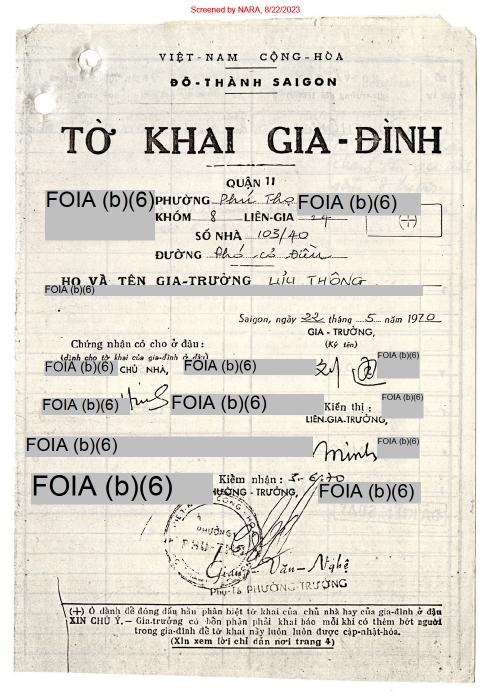 Screened by NARA, 8/22/2023
VIỆT-NAM CỘNG-HÒA
ĐÔ-THÀNH SAIGON
TỜ KHAI GIA-ĐÌNH
QUẬN 11
FOIA (b)(6) PHƯỜNG Phú Thọ FOIA (b)(6)
KHÓM 8 LIÊN-GIA 24 (+)
SỐ NHÀ 103/40
ĐƯỜNG Phó cơ Điều
HỌ VÀ TÊN GIA-TRƯỞNG LƯU THÔNG
FOIA (b)(6)
Saigon, ngày 22 tháng 5 năm 1970
GIA-TRƯỞNG,
Chứng nhận có cho ở đậu: (Ký tên)
(dành cho tờ khai của gia-đình ở đậu) FOIA (b)(6)
FOIA (b)(6) CHỦ NHÀ, FOIA (b)(6) 刘通
FOIA (b)(6) FOIA (b)(6) Kiến thị: FOIA (b)(6)
LIÊN-GIA-TRƯỞNG,
FOIA (b)(6) minh FOIA (b)(6)
FOIA (b)(6) Kiểm nhận: 3-6-70
PHƯỜNG-TRƯỞNG, FOIA (b)(6)
PHƯỜNG
PHÚ-THỌ
Văn-Nghệ
Phụ-Tá PHƯỜNG-TRƯỞNG
(+) Ô dành để đóng dấu hầu phân biệt tờ khai của chủ nhà hay của gia-đình ở đậu
XIN CHÚ Ý.- Gia-trưởng có bổn phận phải khai báo mỗi khi có thêm bớt người
trong gia-đình để tờ khai này luôn luôn được cập-nhật-hóa.
(Xin xem lời chỉ dẫn nơi trang 4)